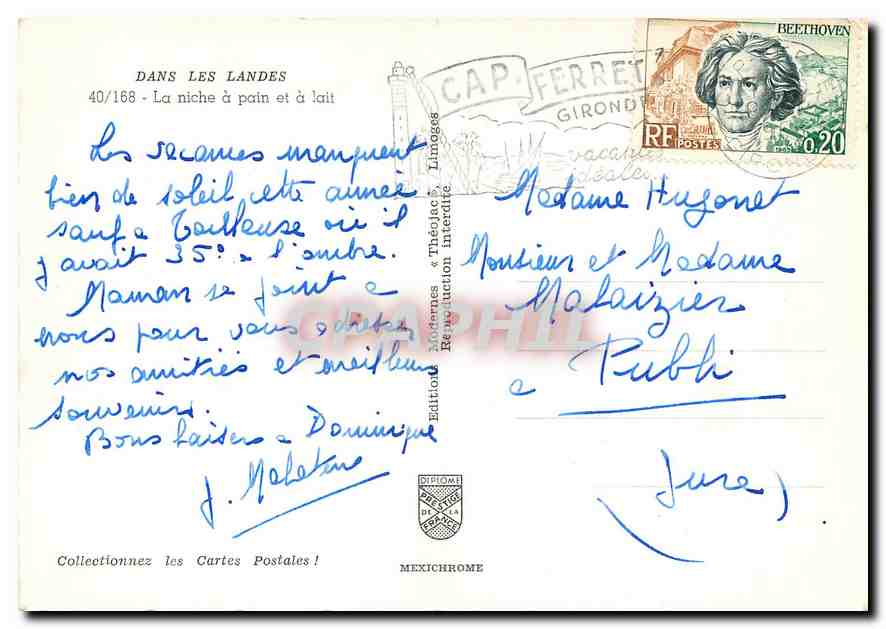 DANS LES LANDES
40/168 - La niche à pain et à lait
Les vacances manquent
bien de soleil cette année
sauf a Toulouse où il
y avait 35° a l'ombre.
Maman se joint a
nous pour vous adresser
nos amitiés et meilleurs
souvenirs.
Bons baisers a Dominique
J.
Collectionnez les Cartes Postales !
Editions Modernes « Théojac », Limoges
Reproduction interdite
DIPLOME
PRESTIGE
DE LA
FRANCE
MEXICHROME
CAP-FERRET
GIRONDE
vacances
idéales
BEETHOVEN
RF
POSTES
0,20
Madame Hugonet
Monsieur et Madame
Malaizier
a Publy
(Jura)
CPAPHIL